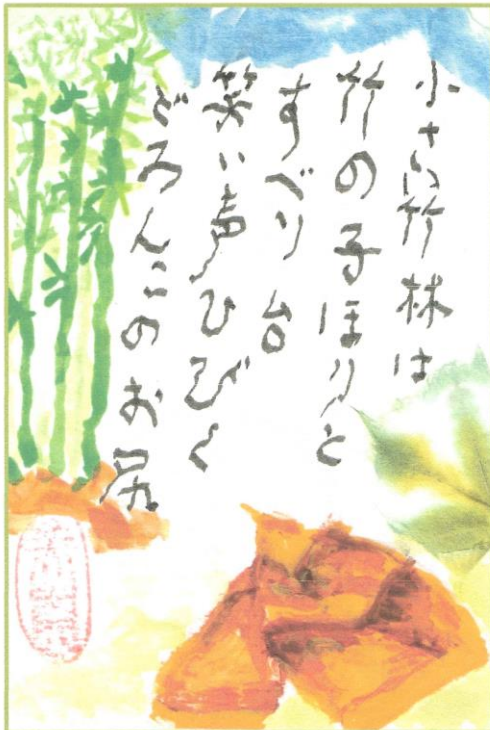 小さい竹林は
竹の子ほりと
すべり台
笑い声ひびく
どろんこのお尻